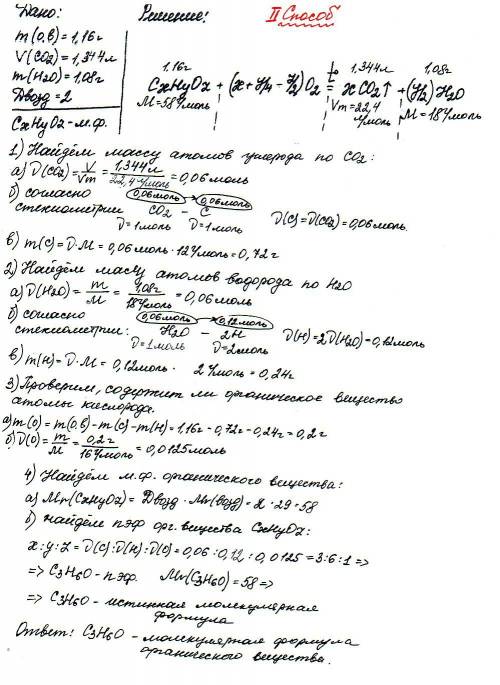 Дано:
Решение!
II Способ
m(о.в)=1,16г
V(CO2)=1,344л
m(H2O)=1,08г
Двозд=2
CxHyOz-м.ф.
1,16г
1,344л
1,08г
CxHyOz + (x+y/4-z/2)O2 = xCO2↑ + (y/2)H2O
t°
M=58г/моль
Vm=22,4
л/моль
M=18г/моль
1) Найдём массу атомов углерода по CO2:
а) ν(CO2)=V/Vm=1,344л/22,4л/моль=0,06моль
б) согласно
стехиометрии
0,06моль
0,06моль
CO2 - C
ν=1моль ν=1моль
ν(C)=ν(CO2)=0,06моль.
в) m(C)=ν·M=0,06моль·12г/моль=0,72г
2) Найдём массу атомов водорода по H2O
а) ν(H2O)=m/M=1,08г/18г/моль=0,06моль
б) согласно
стехиометрии:
0,06моль
0,12моль
H2O - 2H
ν=1моль ν=2моль
ν(H)=2ν(H2O)=0,12моль
в) m(H)=ν·M=0,12моль· 2г/моль=0,24г
3) Проверим, содержит ли органическое вещество
атомы кислорода.
а) m(O)=m(о.в)-m(C)-m(H)=1,16г-0,72г-0,24г=0,2г
б) ν(O)=m/M=0,2г/16г/моль=0,0125моль
4) Найдём м.ф. органического вещества:
а) Mr(CxHyOz)=Двозд·Mr(возд)=2·29=58
б) найдём пэф орг. вещества CxHyOz:
x:y:z=ν(C):ν(H):ν(O)=0,06:0,12:0,0125=3:6:1=>
=> C3H6O-пэф. Mr(C3H6O)=58=>
=> C3H6O-истинная молекулярная
формула
Ответ: C3H6O-молекулярная формула
органического вещества.